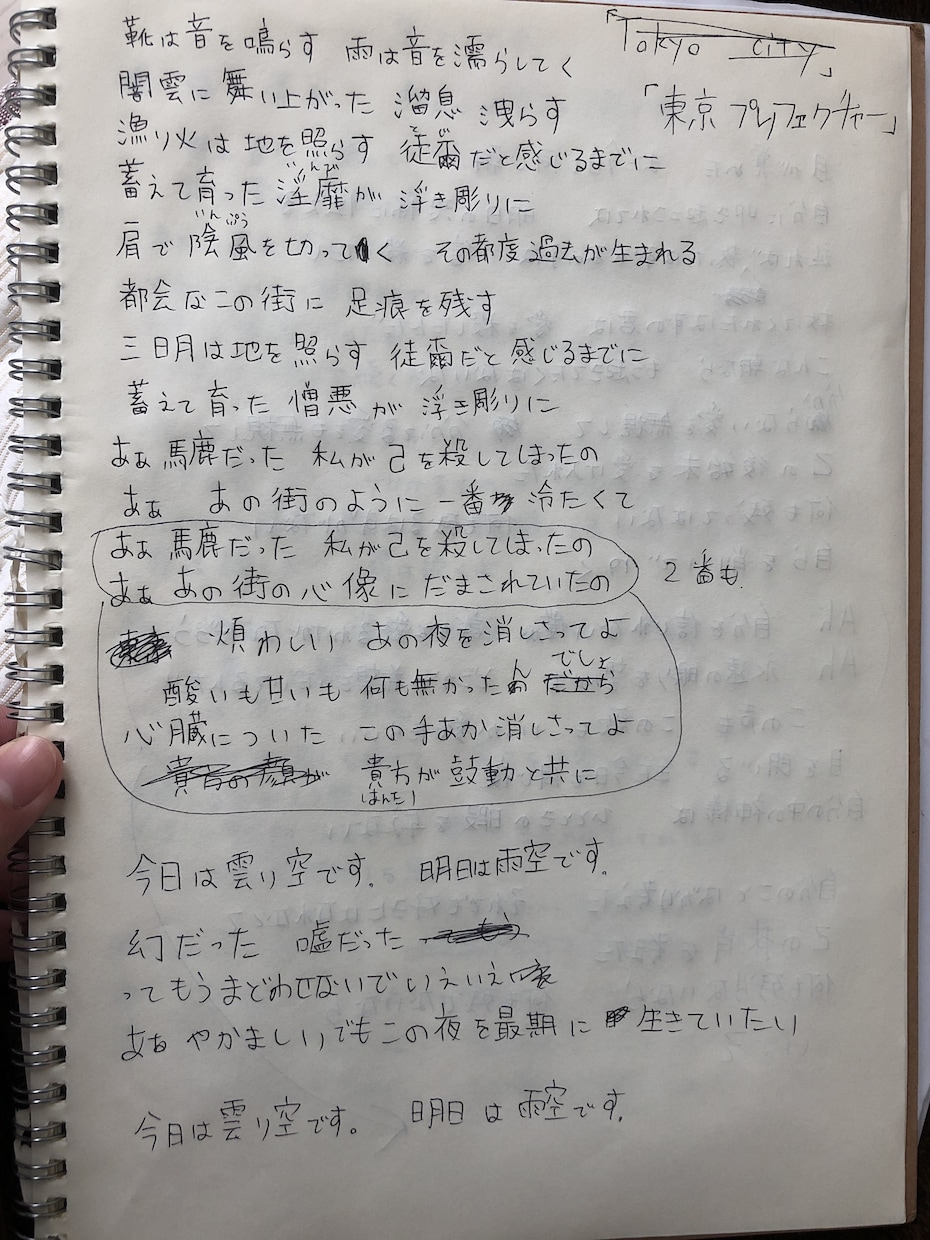 「Tokyo City」
「東京プレフェクチャー」
靴は音を鳴らす 雨は音を濡らしてく
闇雲に舞い上がった 溜息 洩らす
漁り火は地を照らす 徒爾だと感じるまでに
蓄えて育った 淫靡が 浮き彫りに
肩で陰風を切ってく その都度過去が生まれる
いんぷう
都会なこの街に 足痕を残す
三日月は地を照らす 徒爾だと感じるまでに
蓄えて育った 憎悪が 浮き彫りに
あぁ 馬鹿だった 私が己を殺してしまったの
あぁ あの街のように 一番 冷たくて
あぁ 馬鹿だった 私が己を殺してしまったの
あぁ あの街の心像に だまされていたの
2番も
煩わしい あの夜を消しさってよ
酸いも甘いも 何も無かったんでしょ
だから
心臓についた この手あか消しさってよ
貴方の顔が 貴方が 鼓動と共に
今日は曇り空です。 明日は雨空です。
幻だった 嘘だった
ってもうまどわせないで いえいえ
あぁ やかましい でもこの夜を最期に 生きていたい
今日は曇り空です。 明日は雨空です。